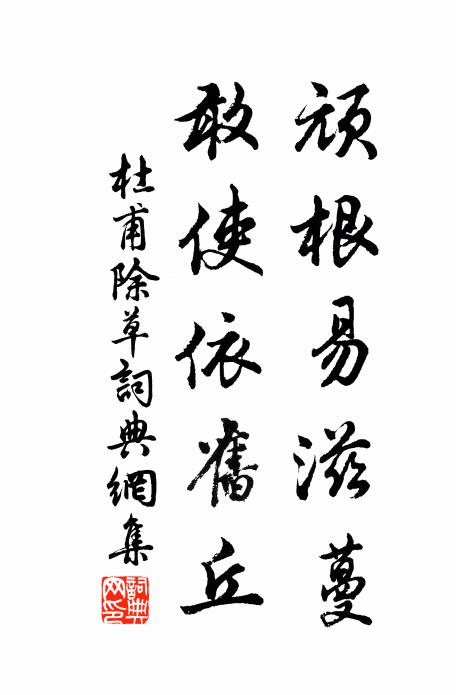 頑根易滋蔓
敢使依舊丘
杜甫除草詞典網集
詞典網印